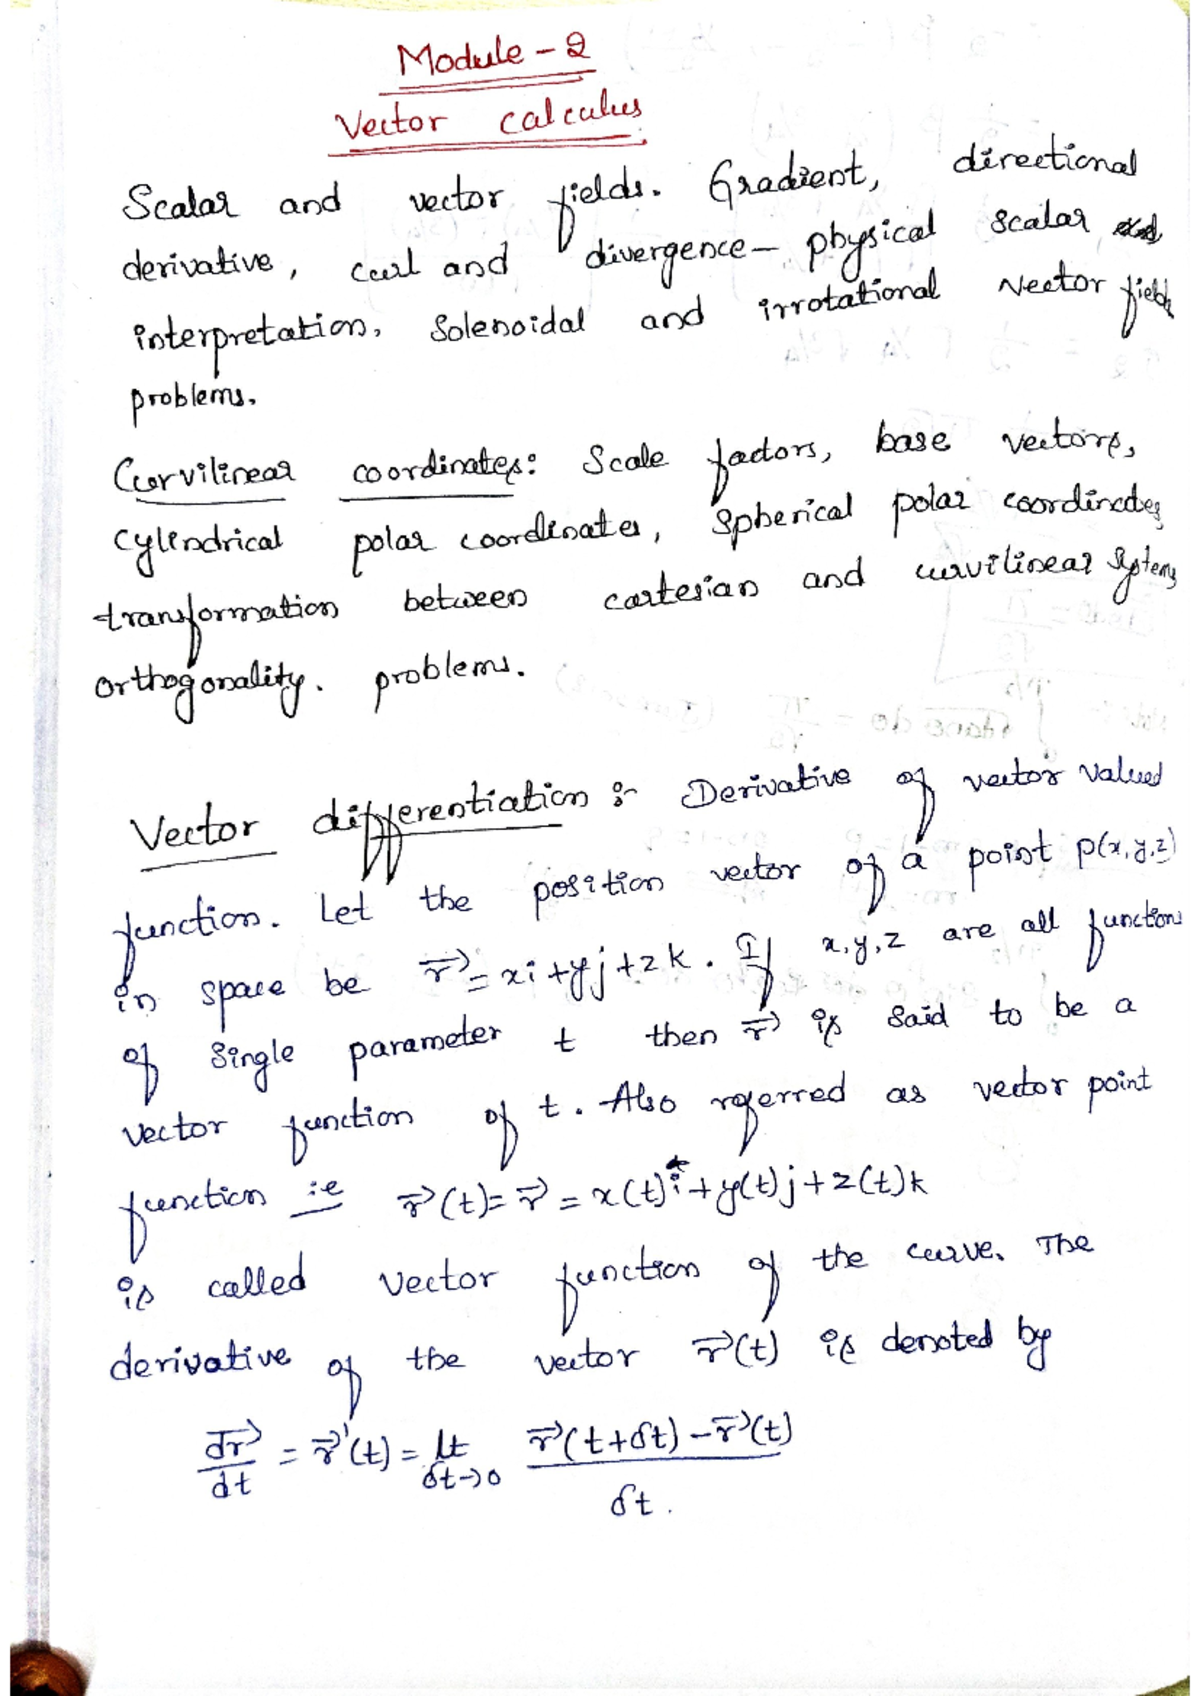 Module - 2
Vector calculus
Scalar and vector fields. Gradient, directional
derivative, curl and divergence - physical scalar
interpretation, Solenoidal and irrotational Vector fields
problems.
Curvilinear coordinates: Scale factors, base vectors,
cylindrical polar coordinates, Spherical polar coordinates
transformation between cartesian and curvilinear systems
orthogonality. problems.
Vector differentiation :- Derivative of vector valued
function. Let the position vector of a point P(x,y,z)
in space be r⃗ = xi + yj + zk. If x,y,z are all functions
of Single parameter t then r⃗ is said to be a
vector function of t. Also referred as vector point
function ie r⃗(t) = r⃗ = x(t)i + y(t)j + z(t)k
is called vector function of the curve. The
derivative of the vector r⃗(t) is denoted by
dr⃗/dt = r⃗'(t) = lt δt→0 r⃗(t+δt) - r⃗(t) / δt.